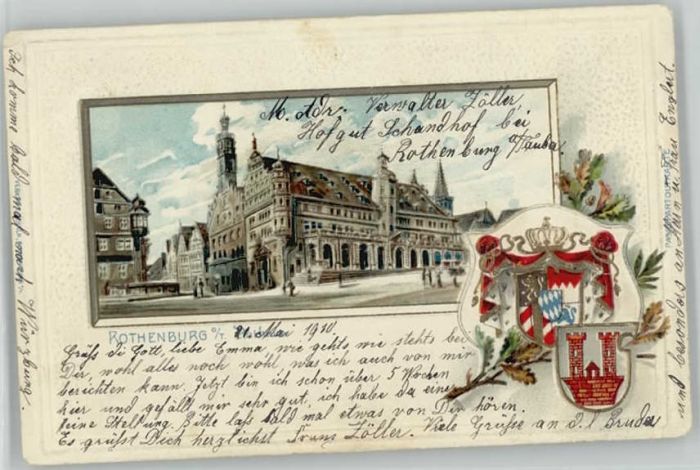 M. Adr. Verwalter Zöller,
Hofgut Schandhof bei
Rothenburg o/Tauba.
ROTHENBURG O/T
21. Mai 1910.
Grüß di Gott, liebe Emma, wie gehts, wie stehts bei
Dir, wohl alles noch wohl, was ich auch von mir
berichten kann. Jetzt bin ich schon über 5 Wochen
hier und gefällt mir sehr gut, ich habe da eine
feine Stellung. Bitte laß bald mal etwas von Dir hören.
Es grüßt Dich herzlichst Franz Zöller. Viele Grüße an d. l. Bruder
und besonders an Herrn u. Frau Englert.
Ich komme bald mal nach Würzburg.
PASSEPARTOUTKARTE